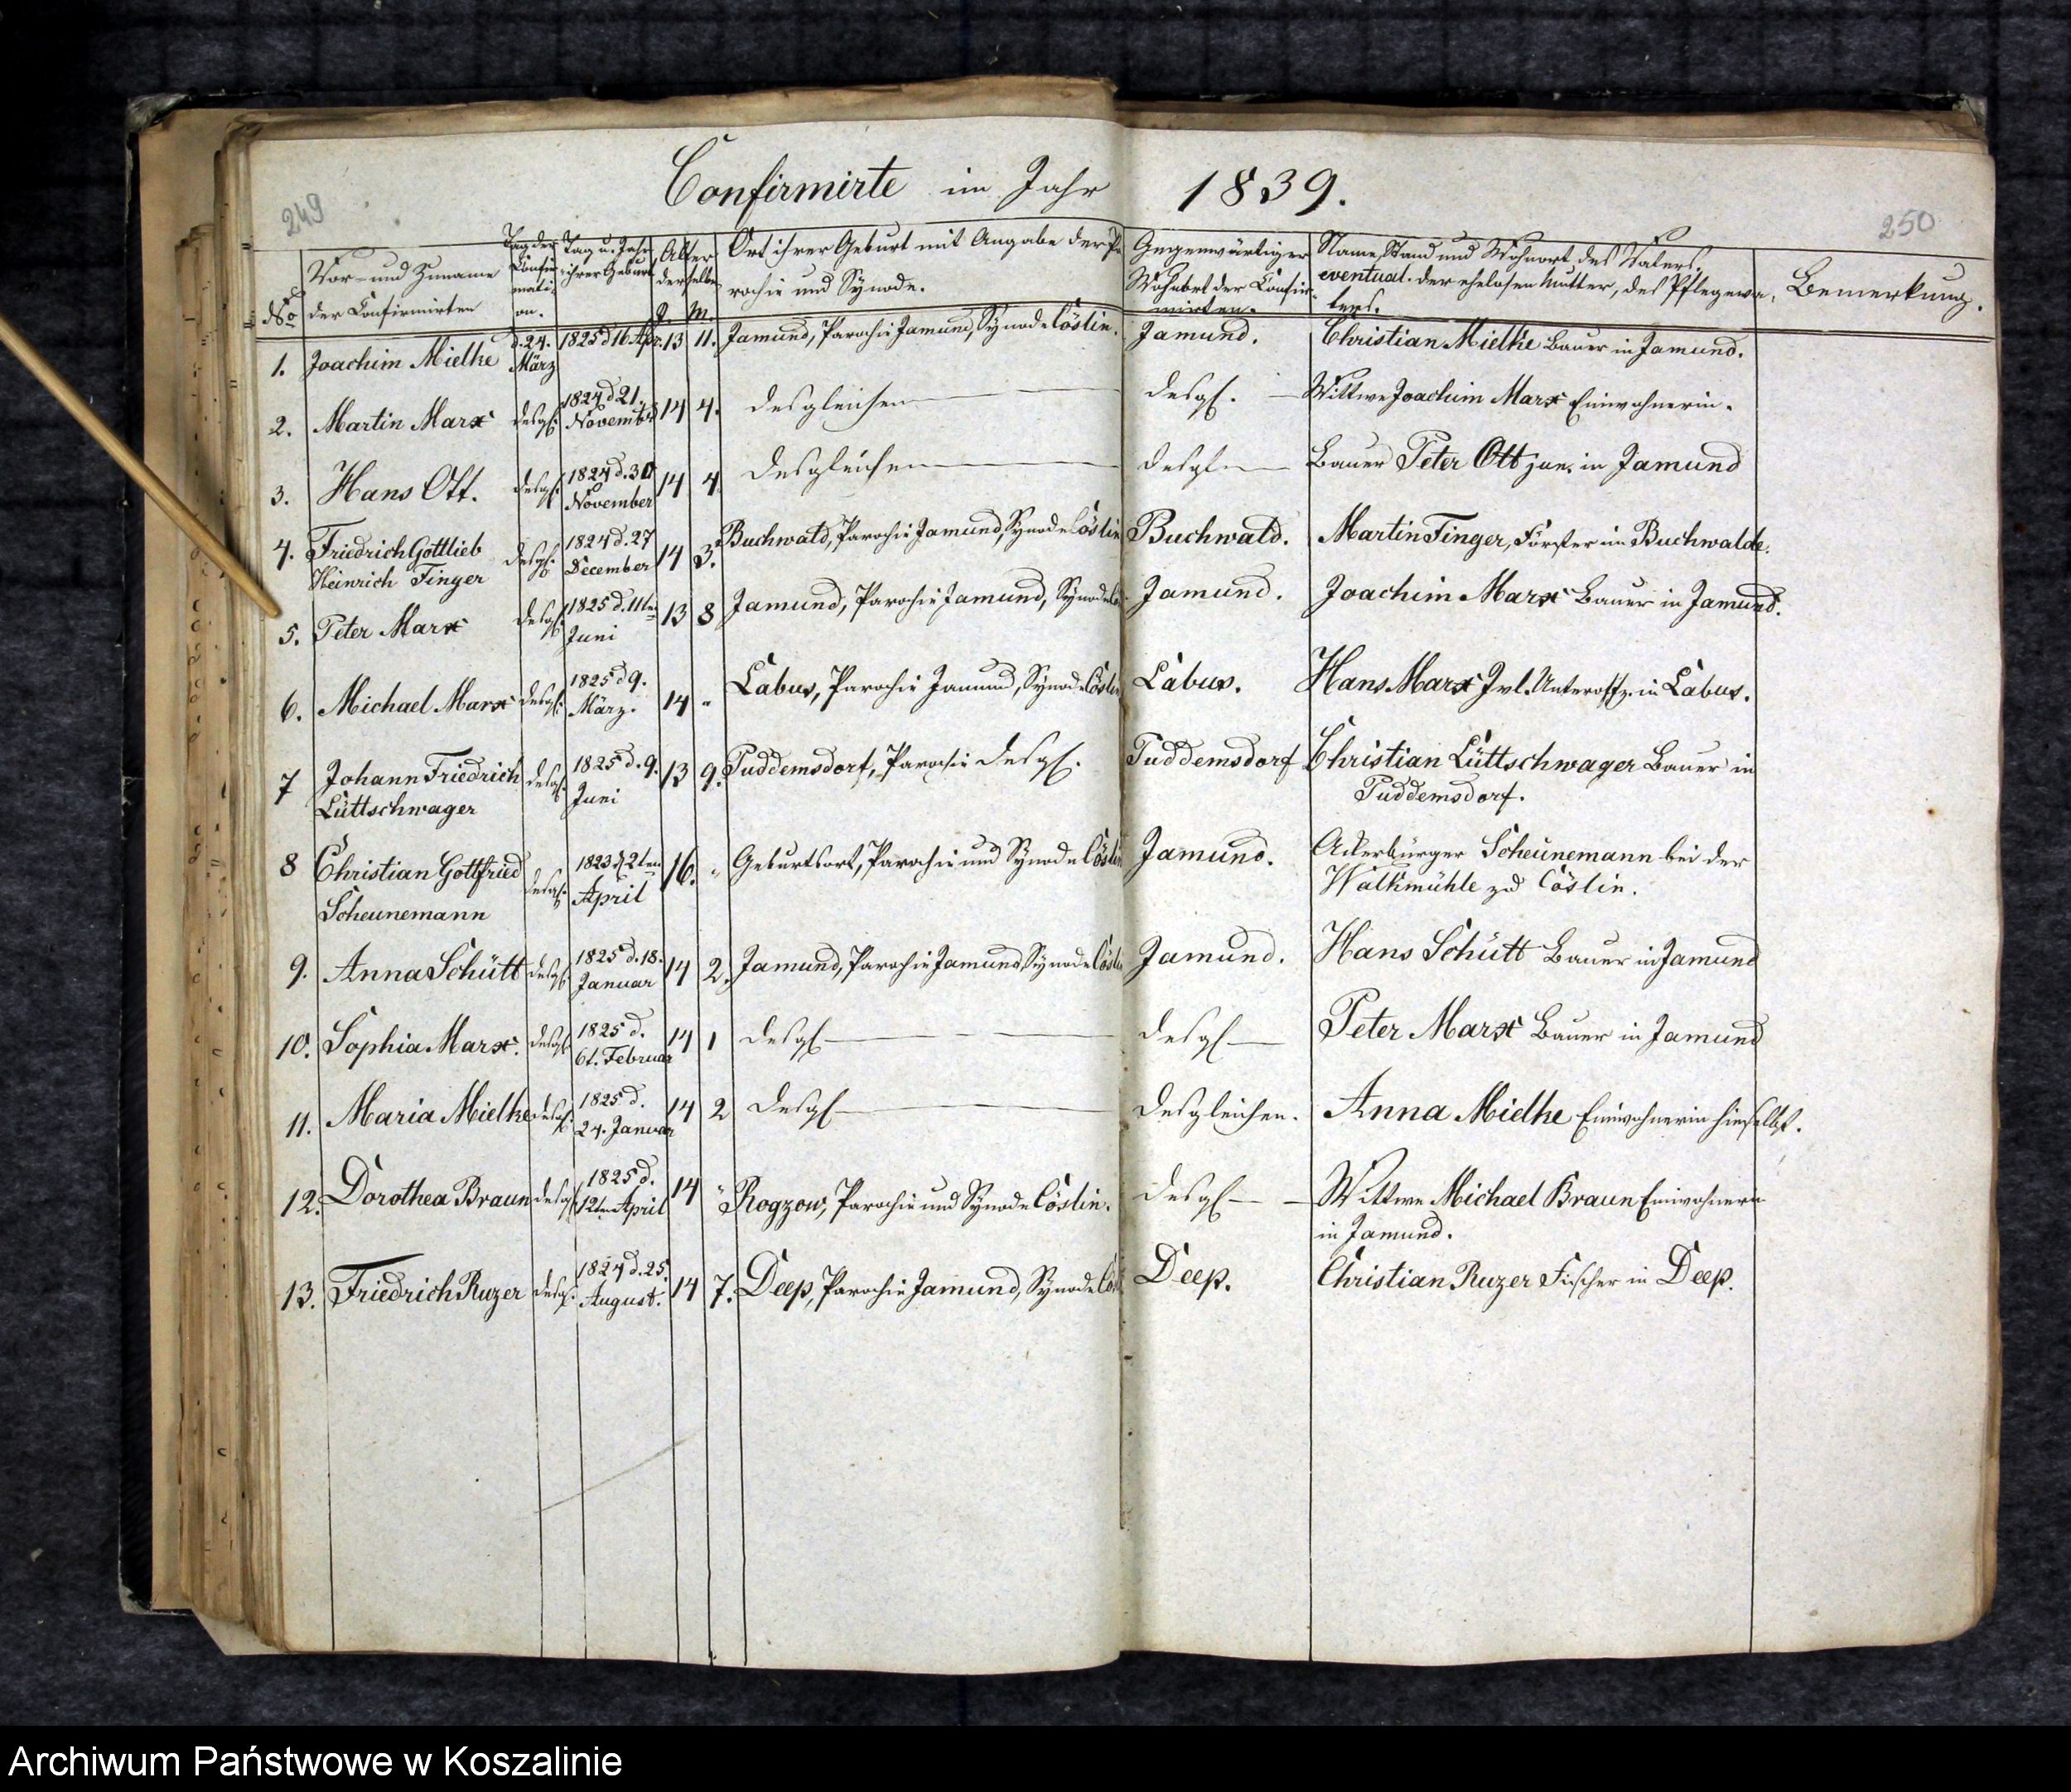 249
Confirmirte im Jahr 1839.
250
No
Vor- und Zuname der Confirmirten
Tag der Confirmati-on.
Tag u. Jahr ihrer Geburt
Alter derselben
J. M.
Ort ihrer Geburt mit Angabe der Parochie und Synode.
Gegenwärtiger Wohnort der Confirmirten.
Name, Stand und Wohnort des Vaters, eventual. der ehelosen Mutter, des Pflegevaters.
Bemerkung.
1. Joachim Mielke d. 24. März 1825 d 16 Apr. 13 11. Jamund, Parochie Jamund, Synode Cöslin. Jamund. Christian Mielke Bauer in Jamund.
2. Martin Marx desgl. 1824 d 21. November 14 4. desgleichen desgl. Wittwe Joachim Marx Einwohnerin.
3. Hans Ott. desgl. 1824 d. 30 November 14 4. desgleichen desgl. Bauer Peter Ott jun. in Jamund
4. Friedrich Gottlieb Heinrich Finger desgl. 1824 d. 27 December 14 3. Buchwald, Parochie Jamund, Synode Cöslin Buchwald. Martin Finger, Förster in Buchwalde.
5. Peter Marx desgl. 1825 d. 11ten Juni 13 8 Jamund, Parochie Jamund, Synode Jamund. Joachim Marx Bauer in Jamund.
6. Michael Marx desgl. 1825 d 9. März. 14 " Labus, Parochie Jamund, Synode Cöslin Labus. Hans Marx Inl. Unteroffz. in Labus.
7 Johann Friedrich Lüttschwager desgl. 1825 d. 9. Juni 13 9. Puddemsdorf, Parochie desgl. Puddemsdorf Christian Lüttschwager Bauer in
Puddemsdorf.
8 Christian Gottfried Scheunemann desgl. 1823 d 2ten April 16. " Geburtsort, Parochie und Synode Cöslin Jamund. Ackerbürger Scheunemann bei der
Walkmühle zu Cöslin.
9. Anna Schütt desgl. 1825 d. 18. Januar 14 2. Jamund, Parochie Jamund, Synode Cöslin Jamund. Hans Schütt Bauer in Jamund
10. Sophia Marx. desgl. 1825 d. 6t. Februar 14 1 desgl. desgl. Peter Marx Bauer in Jamund
11. Maria Mielke desgl. 1825 d. 24. Januar 14 2 desgl. desgleichen. Anna Mielke Einwohnerin hieselbst.
12. Dorothea Braun desgl. 1825 d. 12ten April 14 " Rogzow, Parochie und Synode Cöslin. desgl. Wittwe Michael Braun Einwohnerin
in Jamund.
13. Friedrich Ruzer desgl. 1824 d. 25. August. 14 7. Deep, Parochie Jamund, Synode Deep. Christian Ruzer Fischer in Deep.
Archiwum Państwowe w Koszalinie